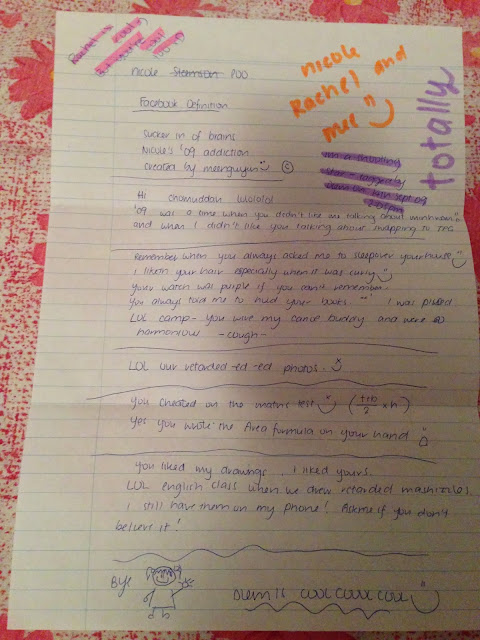 Nicole Stemson POO
nicole
Rachel and
mee
totally
Facebook Definition
sucker in of brains
Nicole's '09 addiction
created by meenguyen ©
im a shooting
star - taggedly
2:01pm
Hi chomuddah lololol
'09 was a time when you didn't like me talking about
and when I didn't like you talking about mapping to TNG
Remember when you always asked me to sleepover yourhouse
I likedn your hair especially when it was curly
Your watch was purple if you don't remember.
You always told me to hold your books. I was pissed
LOL camp - you were my canoe buddy and were so
harmoniouw -cough-
LOL our retarded-ed-ed photos.
You cheated on the maths test (a+b/2 x h)
Yes you wrote the Area formula on your hand
You liked my drawings. I liked yours.
LOL english class when we drew retarded
I still have them on my phone! Ask me if you don't
believe it!
Bye
Diem is cool cool cool